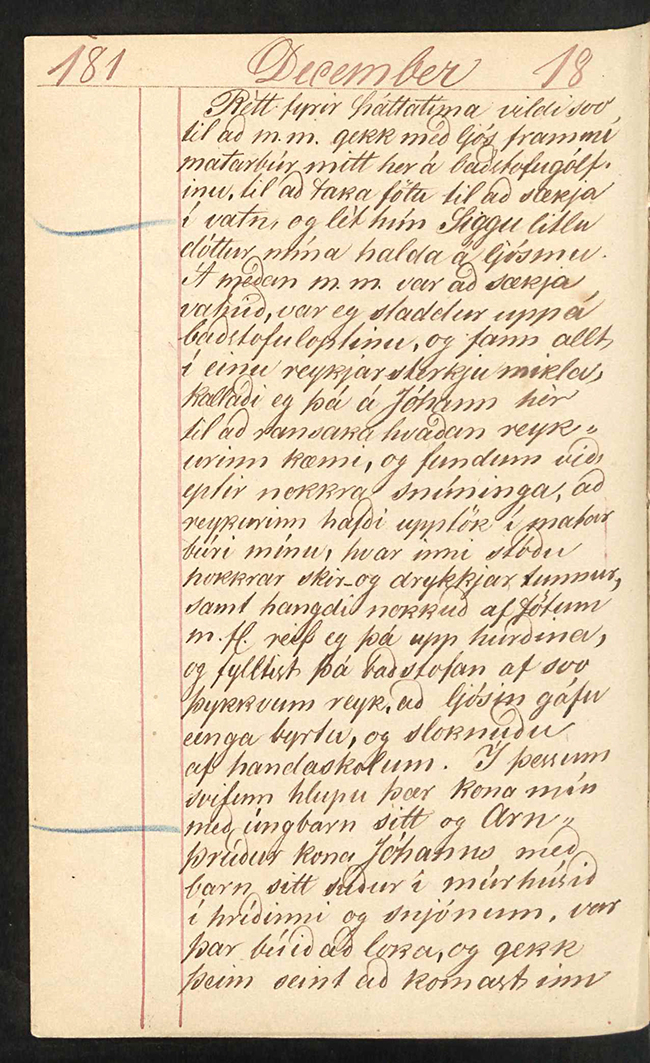 181 December 18
Rétt fyrir háttatíma vildi svo
til að m.m. gekk með ljós frammí
matarbúr mitt her á baðstofugólf-
inu, til að taka fötu til að sækja
í vatn, og lét hún Siggu litlu
dóttur mína halda á ljósinu.
Á meðan m.m. var að sækja
vatnið, var eg staddur uppá
baðstofuloptinu, og fann allt
í einu reykjarsterkju mikla,
kallaði eg þá á Jóhann hér
til að ransaka hvaðan reyk„
urinn kæmi, og fundum við,
eptir nokkra snúninga, að
reykurinn hafði upptök í matar
búri mínu, hvar inni stóðu
nokkrar skir- og drykkjar tunnur,
samt hangdi nokkuð af fötum
m. fl. reif eg þá upp hurðina,
og fylltist þá baðstofan af svo
þykkvum reyk, að ljósin gáfu
eínga byrtu, og sloknuðu
af handaskolum. Í þessum
svifum hlupu þær kona mín
með úngbarn sitt og Arn„
þrúður kona Jóhanns með
barn sitt suður í múrhúsið
í hríðinni og snjónum, var
þar búið að loka, og gekk
þeim seint að komast inn